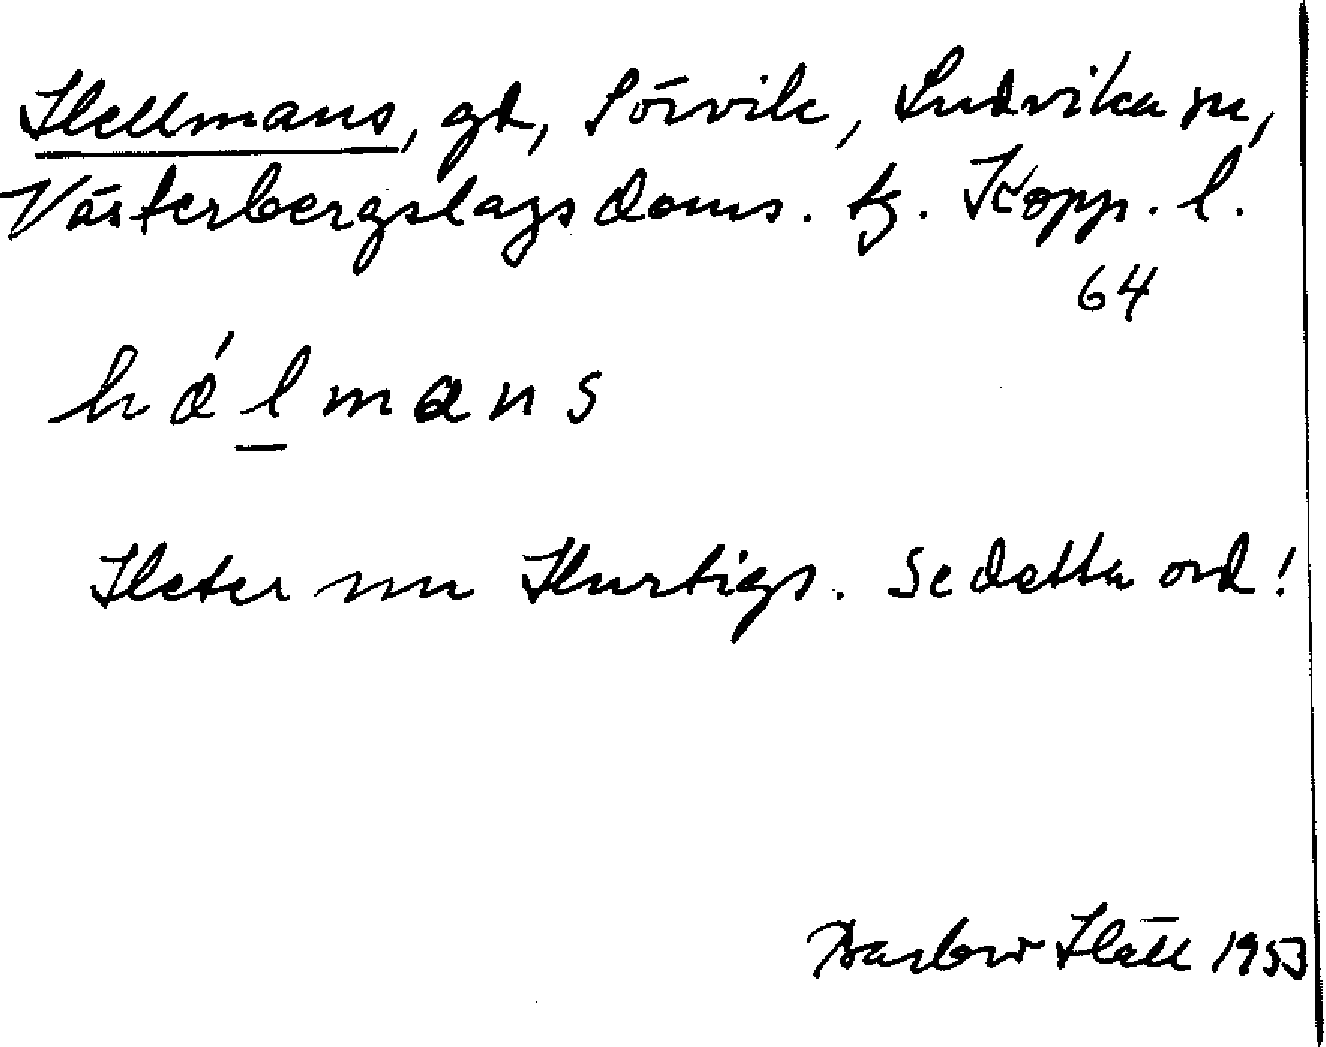 Hellmans, gd, Sörvik, Ludvika sn,
Västerbergslags doms. tg. Kopp. l.
64
hálmans
Heter nu Hurtigs. Se detta ord!
Hall 1953